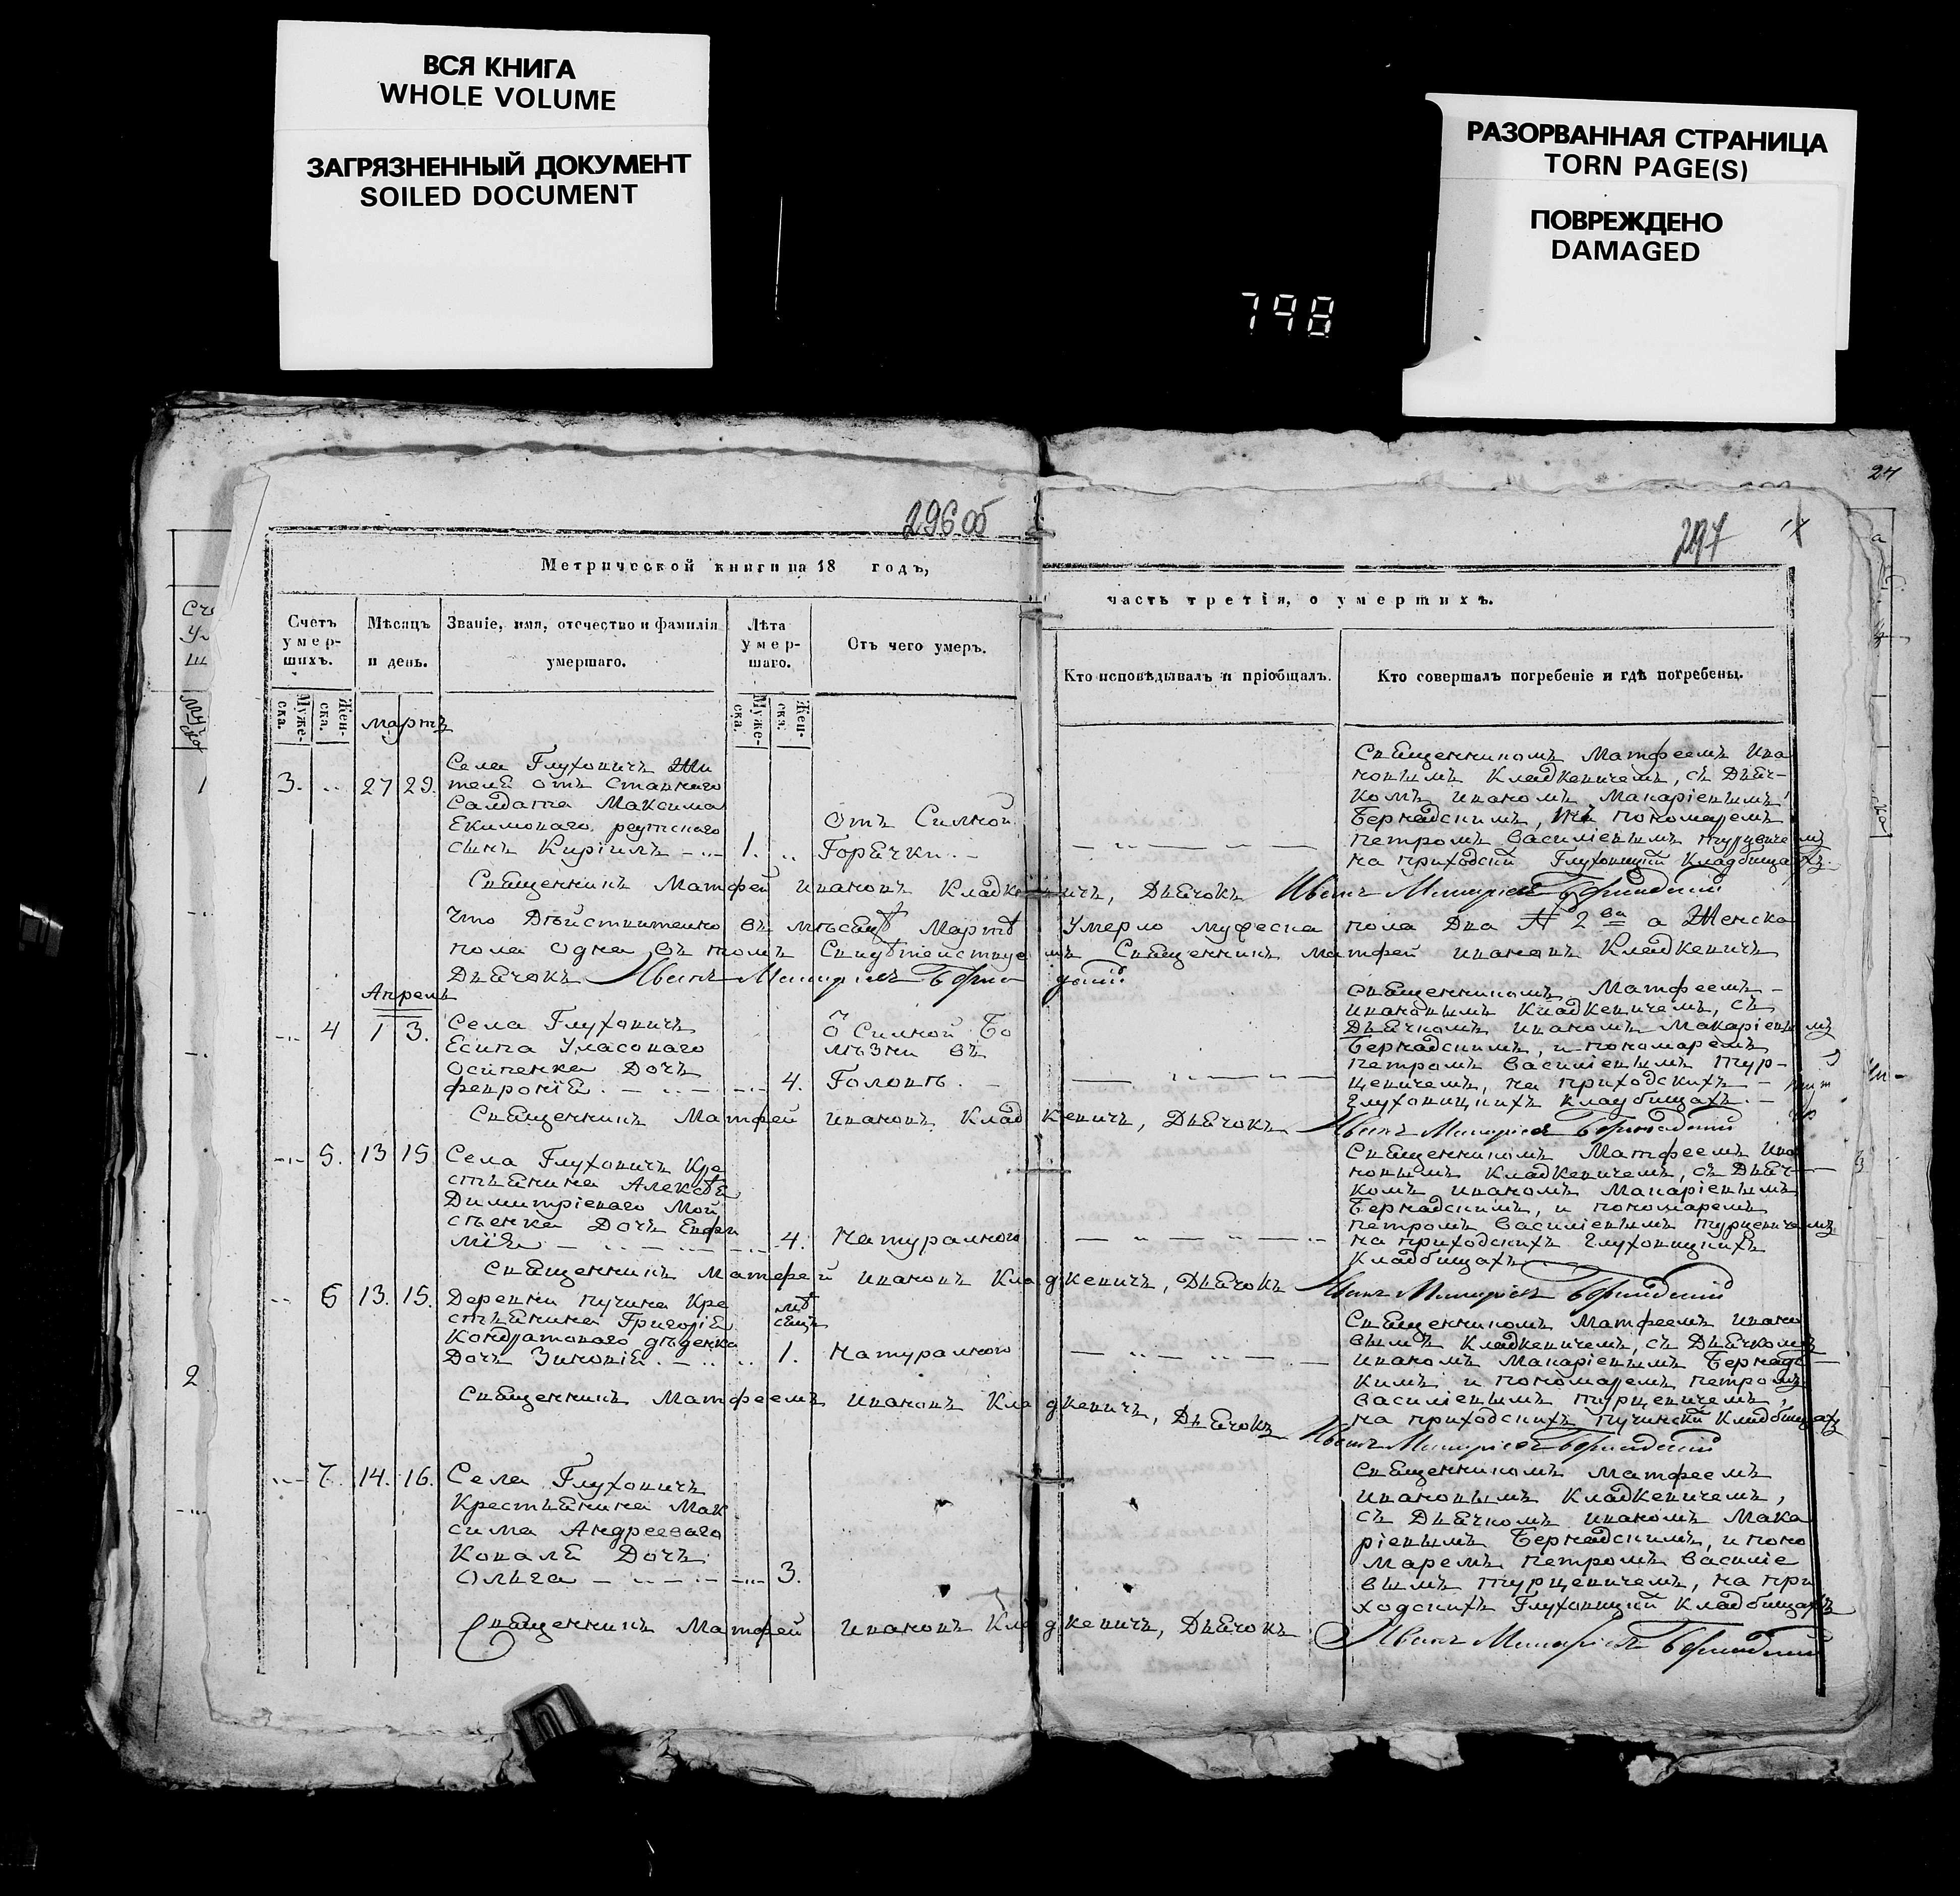 ВСЯ КНИГА
WHOLE VOLUME
ЗАГРЯЗНЕННЫЙ ДОКУМЕНТ
SOILED DOCUMENT
РАЗОРВАННАЯ СТРАНИЦА
TORN PAGE(S)
ПОВРЕЖДЕНО
DAMAGED
798
296 об
297
Метрической книги на 18 годъ,
часть третія, о умершихъ.
Счетъ умер-шихъ.
Муже-ска.
Жен-ска.
Мѣсяцъ и день.
Званіе, имя, отечество и фамилія умершаго.
Лѣта умер-шаго.
Муже-ска.
Жен-ска.
Отъ чего умеръ.
Кто исповѣдывалъ и пріобщалъ.
Кто совершалъ погребеніе и гдѣ погребены.
мартъ
3. 27 29.
Села Глуховичъ Жи
теля отъ Ставнаго
Салдата Максима
Екимоваго
сынъ Кирилъ 1.
отъ Силной
Горячки.
Священникомъ Матфеемъ Ива
новымъ Кладкевичемъ, съ Дьяч-
комъ иваномъ Макаріевымъ
Бернадскимъ, и пономаремъ
петромъ василіевымъ турцевичемъ
на приходскій Глуховицкій Кладбищахъ.
Священникъ Матфей ивановъ Кладкевичъ, Дьячокъ Иванъ Макаріевъ Бернадский
Что Дѣйствително въ мѣсяцѣ Мартѣ Умерло мужеска пола два № 2 ва а Женска
пола одна въ томъ Свидѣтелствуемъ Священникъ матфей ивановъ Кладкевичъ
Дьячокъ Иванъ Макаріевъ Бернадский
Апрель
4 1 3.
Села Глуховичъ
Есипа Уласоваго
Осипенка Дочь
февронія 4.
о Силной Бо
лѣзни въ
Головѣ.
Священникомъ Матфеемъ
ивановымъ Кладкевичемъ, съ
Дьячкомъ иваномъ Макаріевымъ
Бернадскимъ, и пономаремъ
петромъ василіевымъ тур-
цевичемъ, на приходскихъ
глуховицкихъ кладбищахъ.
Священникъ Матфей ивановъ Кладкевичъ, Дьячокъ Иванъ Макаріевъ Бернадский
5. 13 15
Села Глуховичъ Кре
стьянина Алексѣя
Димитріеваго Мои
сѣенка Дочь Евфи
мія 4.
Натуралного
Священникомъ Матфеемъ Ива
новымъ Кладкевичемъ, съ Дьяч
комъ иваномъ Макаріевымъ
Бернадскимъ, и пономаремъ
петромъ василіевымъ турцевичемъ
на приходскихъ глуховицкихъ
Кладбищахъ
Священникъ Матфей ивановъ Кладкевичъ, Дьячокъ Иванъ Макаріевъ Бернадский
6 13. 15.
Деревни пучина Кре
стьянина Григорія
Кондратоваго дѣденка
Дочь Зиновія.
мѣ
сяцъ
1.
Натуралного
Священникомъ Матфеемъ ивано
вымъ Кладкевичемъ, съ Дьячкомъ
иваномъ Макаріевымъ Бернадс
кимъ и пономаремъ петромъ
василіевымъ турцевичемъ,
на приходскихъ пучинскій Кладбищахъ
Священникъ Матфеемъ ивановъ Кладкевичъ, Дьячокъ
Иванъ Макаріевъ Бернадский
7. 14. 16.
Села Глуховичъ
Крестьянина Мак
сима Андреева­го
Коваля Дочь
Олга 3.
Священникомъ Матфеемъ
ивановымъ Кладкевичемъ,
съ Дьячкомъ иваномъ Мака
ріевымъ Бернадскимъ, и поно
маремъ петромъ василіе
вымъ турцевичемъ, на при
ходскихъ Глуховицкій Кладбищахъ
Священникъ Матфей ивановъ Кладкевичъ, Дьячокъ Иванъ Макаріевъ Бернадский